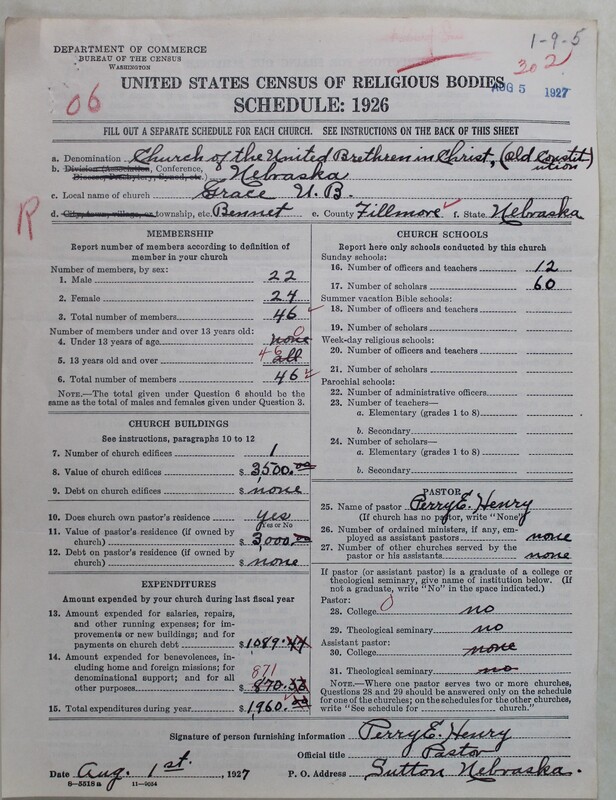 1-9-5
302
DEPARTMENT OF COMMERCE
BUREAU OF THE CENSUS
WASHINGTON
06
UNITED STATES CENSUS OF RELIGIOUS BODIES
AUG 5 1927
SCHEDULE: 1926
FILL OUT A SEPARATE SCHEDULE FOR EACH CHURCH. SEE INSTRUCTIONS ON THE BACK OF THIS SHEET
a. Denomination Church of the United Brethren in Christ, (Old Constitution
b. Division (Association, Conference, Diocese, Presbytery, Synod, etc.) Nebraska
c. Local name of church Grace U.B.
d. City, town, village, or township, etc. Bennet e. County Fillmore f. State Nebraska
R
MEMBERSHIP
Report number of members according to definition of
member in your church
Number of members, by sex:
1. Male 22
2. Female 24
3. Total number of members 46
Number of members under and over 13 years old:
4. Under 13 years of age none 0
5. 13 years old and over 46 all
6. Total number of members 46
NOTE.—The total given under Question 6 should be
same as the total of males and females given under Question 3.
CHURCH BUILDINGS
See instructions, paragraphs 10 to 12
7. Number of church edifices 1
8. Value of church edifices $3500.00
9. Debt on church edifices $none
10. Does church own pastor's residence yes
Yes or No
11. Value of pastor's residence (if owned by
church) $3,000.00
12. Debt on pastor's residence (if owned by
church) $none
EXPENDITURES
Amount expended by your church during last fiscal year
13. Amount expended for salaries, repairs,
and other running expenses; for im-
provements or new buildings; and for
payments on church debt $1089.44
14. Amount expended for benevolences, in-
cluding home and foreign missions; for
denominational support; and for all
other purposes 871 $870.
15. Total expenditures during year $1960.
CHURCH SCHOOLS
Report here only schools conducted by this church
Sunday schools:
16. Number of officers and teachers 12
17. Number of scholars 60
Summer vacation Bible schools:
18. Number of officers and teachers
19. Number of scholars
Week-day religious schools:
20. Number of officers and teachers
21. Number of scholars
Parochial schools:
22. Number of administrative officers
23. Number of teachers—
a. Elementary (grades 1 to 8)
b. Secondary
24. Number of scholars—
a. Elementary (grades 1 to 8)
b. Secondary
PASTOR
25. Name of pastor Perry E. Henry
(If church has no pastor, write "None")
26. Number of ordained ministers, if any, em-
ployed as assistant pastors none
27. Number of other churches served by the
pastor or his assistants none
If pastor (or assistant pastor) is a graduate of a college or
theological seminary, give name of institution below. (If
not a graduate, write "No" in the space indicated.)
Pastor:
28. College no
29. Theological seminary no
Assistant pastor:
30. College none
31. Theological seminary no
NOTE.—Where one pastor serves two or more churches,
Questions 28 and 29 should be answered only on the schedule
for one of the churches; on the schedules for the other churches,
write "See schedule church."
Signature of person furnishing information Perry E. Henry
Official title Pastor
Date Aug. 1st., 1927 P. O. Address Sutton Nebraska.
8—5518 a 11—9034